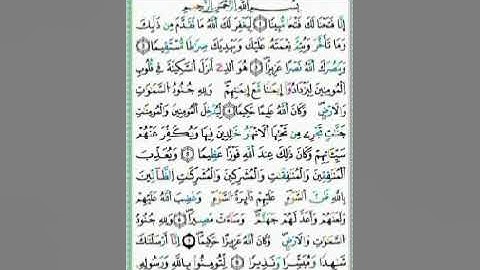 بِسْمِ اللَّهِ الرَّحْمَٰنِ الرَّحِيمِ
إِنَّا فَتَحْنَا لَكَ فَتْحًا مُّبِينًا ١ لِّيَغْفِرَ لَكَ اللَّهُ مَا تَقَدَّمَ مِن ذَنبِكَ
وَمَا تَأَخَّرَ وَيُتِمَّ نِعْمَتَهُ عَلَيْكَ وَيَهْدِيَكَ صِرَاطًا مُّسْتَقِيمًا ٢
وَيَنصُرَكَ اللَّهُ نَصْرًا عَزِيزًا ٣ هُوَ الَّذِي أَنزَلَ السَّكِينَةَ فِي قُلُوبِ
الْمُؤْمِنِينَ لِيَزْدَادُوا إِيمَانًا مَّعَ إِيمَانِهِمْ وَلِلَّهِ جُنُودُ السَّمَٰوَٰتِ
وَالْأَرْضِ وَكَانَ اللَّهُ عَلِيمًا حَكِيمًا ٤ لِّيُدْخِلَ الْمُؤْمِنِينَ وَالْمُؤْمِنَٰتِ
جَنَّٰتٍ تَجْرِي مِن تَحْتِهَا الْأَنْهَٰرُ خَٰلِدِينَ فِيهَا وَيُكَفِّرَ عَنْهُمْ
سَيِّـَٔاتِهِمْ وَكَانَ ذَٰلِكَ عِندَ اللَّهِ فَوْزًا عَظِيمًا ٥ وَيُعَذِّبَ
الْمُنَٰفِقِينَ وَالْمُنَٰفِقَٰتِ وَالْمُشْرِكِينَ وَالْمُشْرِكَٰتِ الظَّانِّينَ
بِاللَّهِ ظَنَّ السَّوْءِ عَلَيْهِمْ دَائِرَةُ السَّوْءِ وَغَضِبَ اللَّهُ عَلَيْهِمْ
وَلَعَنَهُمْ وَأَعَدَّ لَهُمْ جَهَنَّمَ وَسَاءَتْ مَصِيرًا ٦ وَلِلَّهِ جُنُودُ
السَّمَٰوَٰتِ وَالْأَرْضِ وَكَانَ اللَّهُ عَزِيزًا حَكِيمًا ٧ إِنَّا أَرْسَلْنَٰكَ
شَٰهِدًا وَمُبَشِّرًا وَنَذِيرًا ٨ لِّتُؤْمِنُوا بِاللَّهِ وَرَسُولِهِ